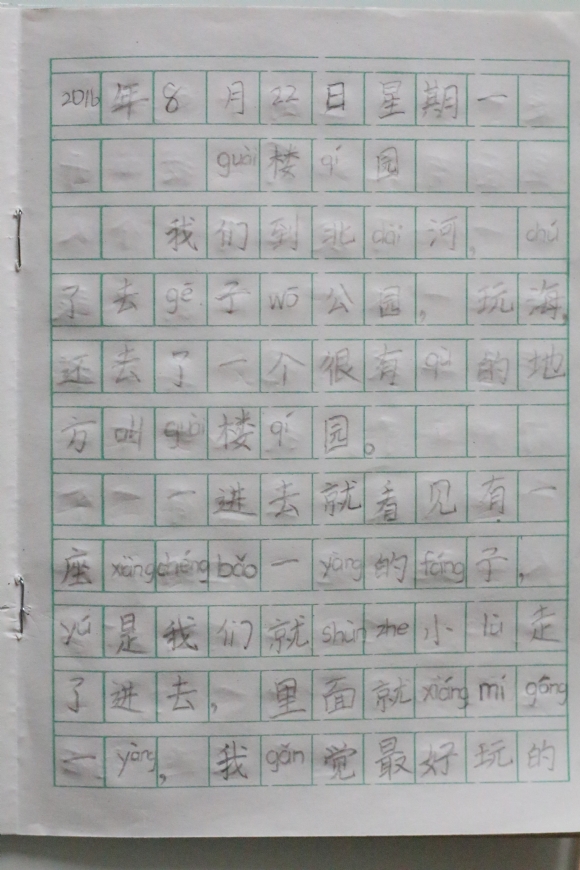 2016年8月22日星期一
guài楼qí园
我们到北dài河，chú
了去gē子wō公园，玩海，
还去了一个很有qù的地
方叫guài楼qí园。
一进去就看见有一
座xiàngchéngbǎo一yàng的fáng子，
yú是我们就shùnzhe小lù走
了进去，里面就xiàngmígōng
一yàng，我gǎn觉最好玩的